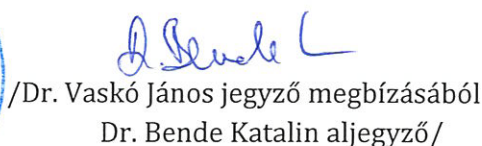 D. Bende
/Dr. Vaskó János jegyző megbízásából
Dr. Bende Katalin aljegyző/